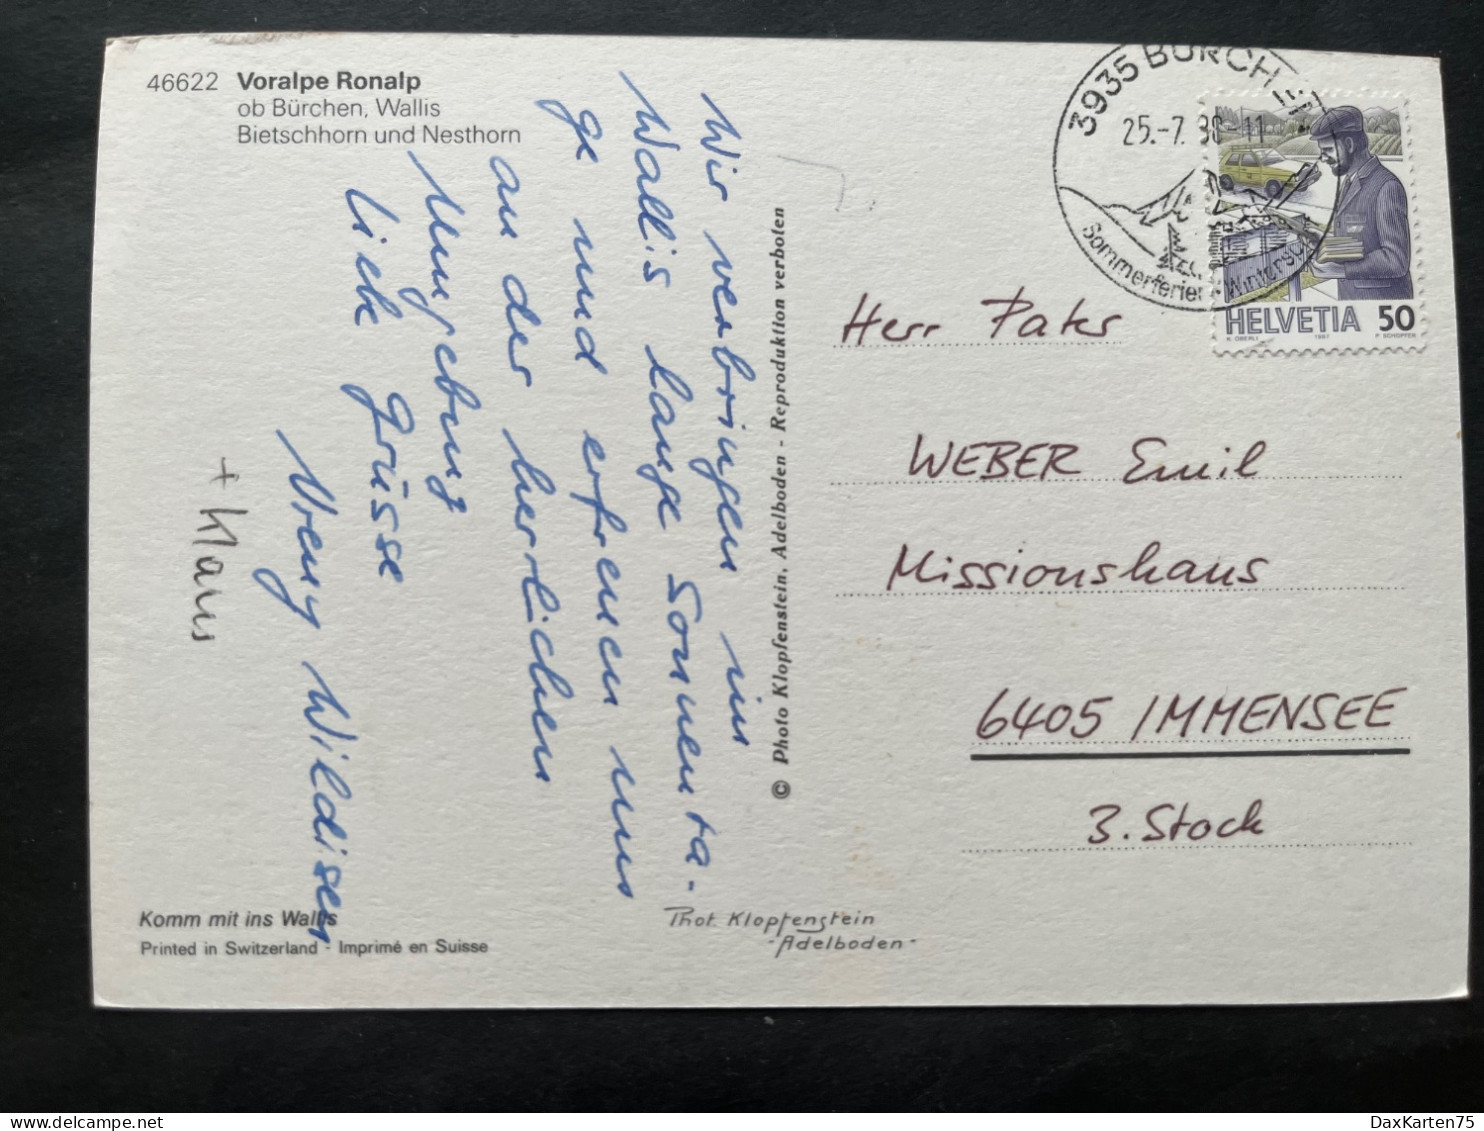 46622 Voralpe Ronalp
ob Bürchen, Wallis
Bietschhorn und Nesthorn
Wir verbringen im
Wallis lange Sonnenta-
ge und erfreuen uns
an der herrlichen
Umgebung
liebe Grüsse
Vreny Wildisen
+ Klaus
Komm mit ins Wallis
Printed in Switzerland - Imprimé en Suisse
© Photo Klopfenstein, Adelboden - Reproduktion verboten
Phot. Klopfenstein
-Adelboden-
3935 BÜRCHEN
25.-7. 11
Sommerferien Winters
HELVETIA 50
K. OBERLI 1987 P. SCHOPFER
Herr Pater
WEBER Emil
Missionshaus
6405 IMMENSEE
3. Stock
DaxKarten75
delcampe.net